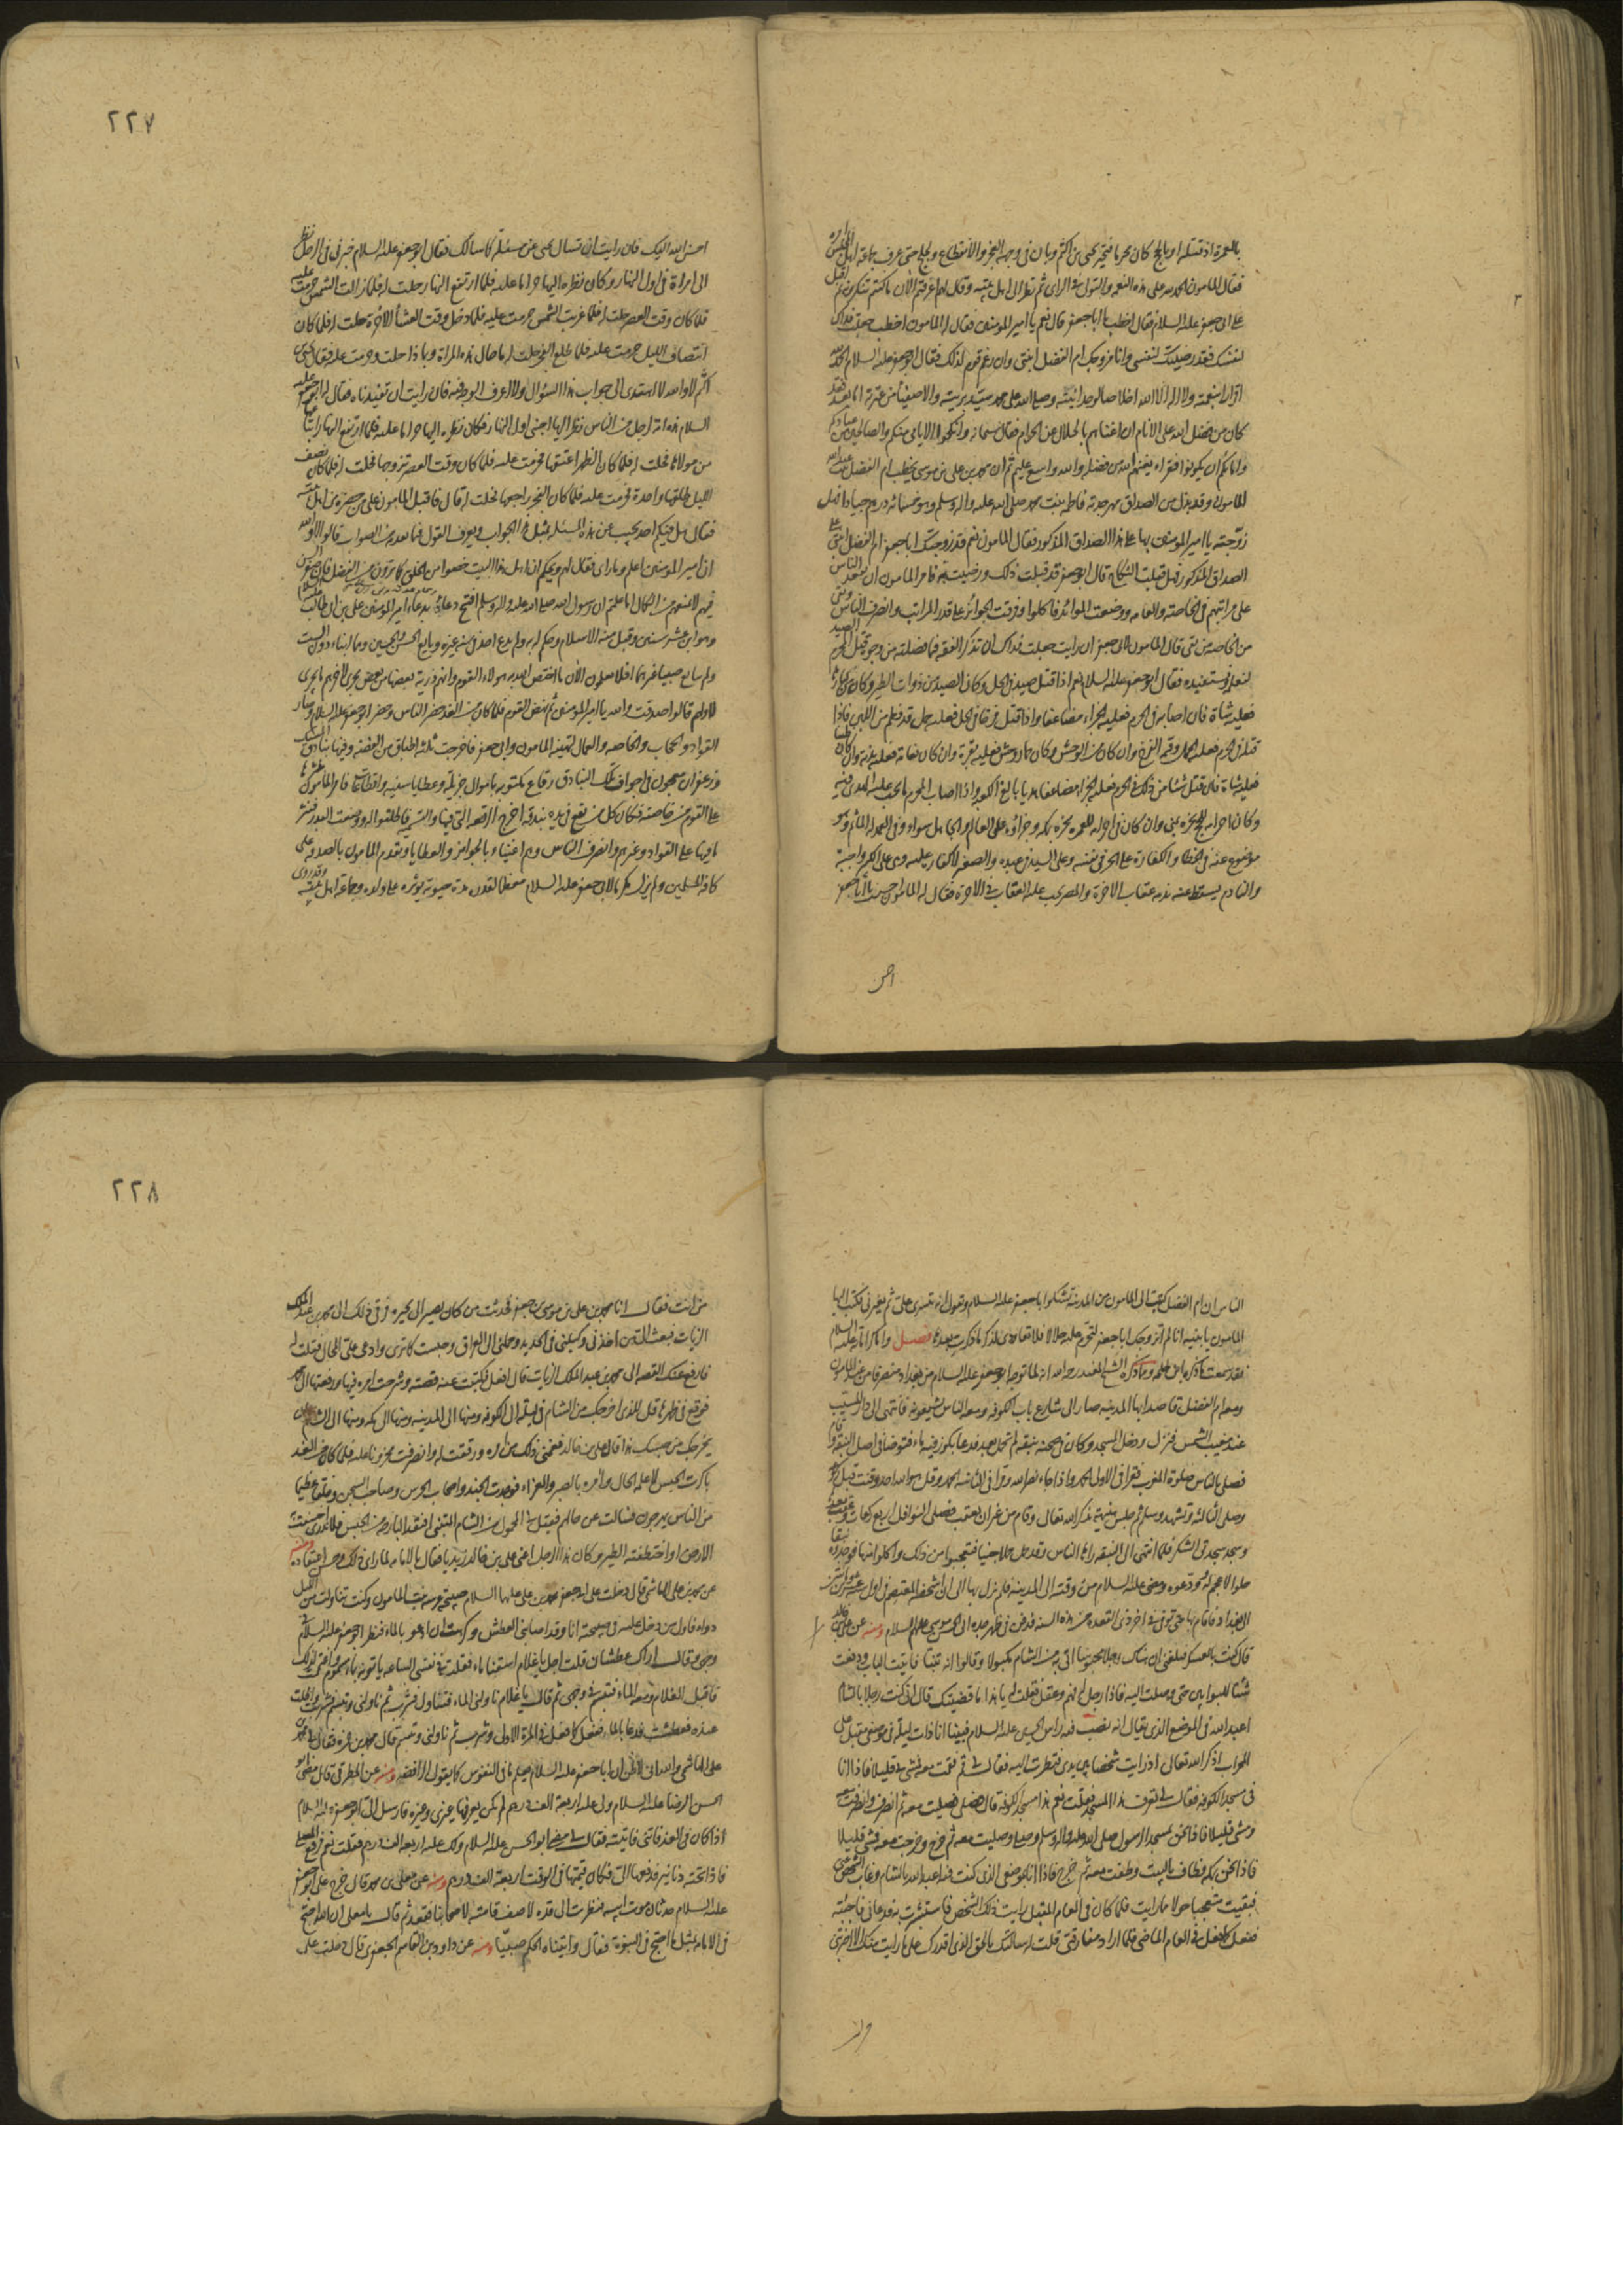 بالعمرة اذ قتله او بالحج كان محرما فتحير يحيى بن اكثم وبان في وجهه العجز والانقطاع ولجلج حتى عرف جماعة اهل المجلس امره
فقال المامون الحمد لله على هذه النعمة والتوفيق لي في الراى ثم نظر الى اهل بيته وقال لهم اعرفتم الان ما كنتم تنكرونه ثم اقبل
على ابي جعفر عليه السلام فقال اتخطب يا ابا جعفر قال نعم يا امير المومنين فقال له المامون اخطب جعلت فداك
لنفسك فقد رضيتك لنفسي وانا مزوجك ام الفضل ابنتي وان رغم قوم لذلك فقال ابو جعفر عليه السلام الحمد لله
اقرارا بنعمته ولا اله الا الله اخلاصا لوحدانيته وصلى الله على محمد سيد بريته والاصفياء من عترته اما بعد فقد
كان من فضل الله على الانام ان اغناهم بالحلال عن الحرام فقال سبحانه وانكحوا الايامى منكم والصالحين من عبادكم
وامائكم ان يكونوا فقراء يغنهم الله من فضله والله واسع عليم ثم ان محمد بن علي بن موسى يخطب ام الفضل بنت عبد الله
المامون وقد بذل من الصداق مهر جدته فاطمه بنت محمد صلى الله عليه واله وسلم وهو خمسمائه درهم جيادا فهل
زوجته يا امير المومنين بها على هذا الصداق المذكور فقال المامون نعم قد زوجتك ابا جعفر ام الفضل ابنتي على
الصداق المذكور فهل قبلت النكاح قال ابو جعفر قد قبلت ذلك ورضيت به فامر المامون ان يقعد الناس
على مراتبهم في الخاصه والعامه ووضعت الموائد فاكلوا وفرقت الجوائز على قدر المراتب وانصرف الناس وبقى
من الخاصه من بقى قال المامون لابي جعفر ان رايت جعلت فداك ان تذكر الفقه فيما فصلته من وجوه قتل المحرم الصيد
لنعلمه ونستفيده فقال ابو جعفر عليه السلام نعم اذا قتل صيدا في الحل وكان الصيد من ذوات الطير وكان من كبارها
فعليه شاة فان اصابه في الحرم فعليه الجزاء مضاعفا واذا قتل فرخا في الحل فعليه حمل قد فطم من اللبن فاذا
قتله في الحرم فعليه الحمل وقيمه الفرخ وان كان من الوحش وكان حمار وحش فعليه بقرة وان كان نعامه فعليه بدنه وان كان ظبيا
فعليه شاة فان قتل شيئا من ذلك في الحرم فعليه الجزاء مضاعفا هديا بالغ الكعبه واذا اصاب المحرم ما يجب عليه الهدى فيه
وكان احرامه للحج نحره بمنى وان كان احرامه للعمره نحره بمكه وجزاؤه على العالم والجاهل سواء وفي العمد له الماثم وهو
موضوع عنه في الخطا والكفاره على الحر في نفسه وعلى السيد في عبده والصغير لا كفارة عليه وهي على الكبير واجبه
والنادم يسقط عنه ندمه عقاب الاخرة والمصر يجب عليه العقاب في الاخرة فقال له المامون احسنت يا ابا جعفر
احسن
٢٢٧
احسن الله اليك فان رايت ان تسال يحيى عن مسئلة كما سالك فقال ابو جعفر عليه السلام خبرني عن رجل نظر
الى امراة في اول النهار وكان نظره اليها حراما عليه فلما ارتفع النهار حلت له فلما زالت الشمس حرمت عليه
فلما كان وقت العصر حلت له فلما غربت الشمس حرمت عليه فلما دخل وقت العشاء الاخرة حلت له فلما كان
انتصاف الليل حرمت عليه فلما طلع الفجر حلت له ما حال هذه المراة وبماذا حلت وحرمت عليه فقال يحيى بن
اكثم لا والله لا اهتدى الى جواب هذا السؤال ولا اعرف الوجه فيه فان رايت ان تفيدناه فقال ابو جعفر عليه
السلام هذه امة لرجل من الناس نظر اليها اجنبي اول النهار فكان نظره اليها حراما عليه فلما ارتفع النهار ابتاعها
من مولاها فحلت له فلما كان الظهر اعتقها فحرمت عليه فلما كان وقت العصر تزوجها فحلت له فلما كان نصف
الليل طلقها واحدة فحرمت عليه فلما كان الفجر راجعها فحلت له قال فاقبل المامون على من حضره من اهل بيته
فقال هل فيكم احد يجيب عن هذه المسئلة بمثل هذا الجواب ويعرف القول فيما تقدم من السوال قالوا لا والله
ان امير المومنين اعلم وما راى فقال لهم ويحكم ان اهل هذا البيت خصوا من الخلق بما ترون من الفضل وان صغر السن
فيهم لا يمنعهم من الكمال اما علمتم ان رسول الله صلى الله عليه واله وسلم افتتح دعاءه بدعاء امير المومنين علي بن ابي طالب عليه السلام
وهو ابن عشر سنين وقبل منه الاسلام وحكم له به ولم يدع احدا في سنه غيره وبايع الحسن والحسين وهما ابناء دون الست
ولم يبايع صبيا غيرهما افلا تعلمون الآن ما اختص الله به هولاء القوم وانهم ذرية بعضها من بعض يجرى لاخرهم ما يجرى
لاولهم قالوا صدقت والله يا امير المومنين ثم نهض القوم فلما كان من الغد حضر الناس وحضر ابو جعفر عليه السلام وصار
القواد والحجاب والخاصه والعمال لتهنية المامون وابي جعفر فاخرجت ثلثه اطباق من الفضه فيها بنادق مسك
وزعفران معجون في اجواف تلك البنادق رقاع مكتوبه باموال جزيله وعطايا سنيه واقطاعات فامر المامون بنثرها
على القوم من خاصته فكان كل من يقع في يده بندقه اخرج الرقعه التي فيها والتمسه فاطلق له ووضعت البدر فنثر
ما فيها على القواد وغيرهم وانصرف الناس وهم اغنياء بالجوائز والعطايا وتقدم المامون بالصدقه على
كافة المسلمين ولم يزل مكرما لابي جعفر عليه السلام معظما لقدره مدة حيوته يوثره على ولده وجماعة اهل بيته وقد روى
الناس ان ام الفضل كتبت الى المامون من المدينه تشكوا ابا جعفر عليه السلام وتقول انه يتسرى علي ثم يغيرني فكتب اليها
المامون يا بنيه انا لم نزوجك ابا جعفر لنحرم عليه حلالا فلا تعاودي لذكر ما ذكرت بعدها فصل واما كراماته عليه السلام
فقد سمعت ما ذكره ابن طلحه وما ذكره الشيخ المفيد رحمه الله انه لما توجه ابو جعفر عليه السلام من بغداد منصرفا من عند المامون
ومعه ام الفضل قاصدا بها المدينه صار الى شارع باب الكوفه ومعه الناس يشيعونه فانتهى الى دار المسيب
عند مغيب الشمس فنزل ودخل المسجد وكان في صحنه نبقه لم تحمل بعد فدعا بكوز فيه ماء فتوضا في اصل النبقه وقام
فصلى بالناس صلوة المغرب فقرا في الاولى الحمد واذا جاء نصر الله وقرا في الثانيه الحمد وقل هو الله احد وقنت قبل ركوعه
وصلى الثالثه وتشهد وسلم ثم جلس هنيهة يذكر الله تعالى وقام من غير ان يعقب فصلى النوافل اربع ركعات وعقب بعدها
وسجد سجدتي الشكر فلما انتهى الى النبقه راها الناس وقد حملت حملا جنيا فتعجبوا من ذلك واكلوا منها فوجدوه نبقا
حلوا لا عجم له وودعوه ومضى عليه السلام من وقته الى المدينه فلم يزل بها الى ان اشخصه المعتصم في اول سنه عشرين ومائتين
الى بغداد فاقام بها حتى توفي في اخر ذي القعده من هذه السنه فدفن في ظهر جده ابي الحسن موسى عليهم السلام ومنه عن علي بن خالد
قال كنت بالعسكر فبلغني ان هناك رجلا محبوسا اتي به من الشام مكبولا وقالوا انه تنبأ فاتيت الباب ودفعت
شيئا للبوابين حتى وصلت اليه فاذا رجل له فهم وعقل فقلت له يا هذا ما قضيتك قال اني كنت رجلا بالشام
اعبد الله في الموضع الذي يقال انه نصب فيه راس الحسين عليه السلام فبينا انا ذات ليلة في موضعي مقبل على
المحراب اذكر الله تعالى اذ رايت شخصا بين يدى فنظرت اليه فقال لي قم فقمت معه فمشى بي قليلا فاذا انا
في مسجد الكوفه فقال لي اتعرف هذا المسجد فقلت نعم هذا مسجد الكوفه قال فصلى فصليت معه ثم انصرف وانصرفت معه
ومشى قليلا فاذا نحن بمسجد الرسول صلى الله عليه واله وسلم وصلى وصليت معه ثم خرج وخرجت معه فمشى قليلا
فاذا نحن بمكه فطاف بالبيت وطفت معه ثم خرج فاذا انا بموضعي الذي كنت فيه اعبد الله بالشام وغاب الشخص عني
فبقيت متعجبا حولا مما رايت فلما كان في العام المقبل رايت ذلك الشخص فاستبشرت به فدعاني فاجبته
ففعل كما فعل في العام الماضي فلما اراد مفارقتي قلت له سالتك بالحق الذي اقدرك على ما رايت منك الا اخبرتني
٢٢٨
من انت فقال انا محمد بن علي بن موسى بن جعفر فحدثت من كان يصير الى بخبره فرقى ذلك الى محمد بن عبد الملك
الزيات فبعث الي من اخذني وكبلني في الحديد وحملني الى العراق وحبست كما ترى وادعى علي المحال فقلت له
فارفع عنك القصه الى محمد بن عبد الملك الزيات قال افعل فكتبت عنه قصته وشرحت امره فيها ورفعتها الى محمد
فوقع في ظهرها قل للذي اخرجك من الشام في ليله الى الكوفه ومنها الى المدينه ومنها الى مكه ومنها الى الشام ان
يخرجك من حبسك هذا قال علي بن خالد فغمني ذلك من امره ورققت له وانصرفت محزونا عليه فلما كان من الغد
باكرت الحبس لاعلمه الحال وآمره بالصبر والعزاء فوجدت الجند واصحاب الحرس وصاحب السجن وخلقا عظيما
من الناس يهرعون فسالت عن حالهم فقيل لي المحمول من الشام المتنبي افتقد البارحه من الحبس فلا ندرى اخسفت به
الارض او اختطفته الطير وكان هذا الرجل اعني علي بن خالد زيديا فقال بالامامه لما راى ذلك وحسن اعتقاده ومنه
عن محمد بن علي الهاشمي قال دخلت على ابي جعفر محمد بن علي عليهما السلام صبيحة عرسه ببنت المامون وكنت تناولت من الليل
دواء فاول من دخل عليه في صبيحته انا وقد اصابني العطش وكرهت ان ادعو بالماء فنظر ابو جعفر عليه السلام في
وجهي وقال اراك عطشان قلت اجل يا غلام اسقنا ماء فقلت في نفسي الساعه ياتونه بماء مسموم واغتممت لذلك
فاقبل الغلام ومعه الماء فتبسم في وجهي ثم قال يا غلام ناولني الماء فتناول فشرب ثم ناولني وتبسم فشربت واطلت
عنده فعطشت فدعا بالماء ففعل كما فعل في المرة الاولى وشرب ثم ناولني وتبسم قال محمد بن حمزه فقال لي محمد بن
علي الهاشمي والله اني لاظن ان ابا جعفر عليه السلام يعلم ما في النفوس كما يقول الرافضه ومنه عن المطرفي قال مضى ابو
الحسن الرضا عليه السلام ولي عليه اربعة الف درهم لم يكن يعرفها غيري وغيره فارسل الي ابو جعفر عليه السلام
اذا كان في الغد فاتني فاتيته فقال لي مضى ابو الحسن عليه السلام ولك عليه اربعه الف درهم فقلت نعم فرفع المصلى
فاذا تحته دنانير فدفعها الي فكان قيمتها في الوقت اربعة الف درهم ومنه عن معلى بن محمد قال خرج علي ابو جعفر
عليه السلام حدثان موت ابيه فنظرت الى قده لاصف قامته لاصحابنا فقعد ثم قال يا معلى ان الله احتج
في الامامه بمثل ما احتج في النبوة فقال وآتيناه الحكم صبيا ومنه عن داود بن القاسم الجعفري قال دخلت على